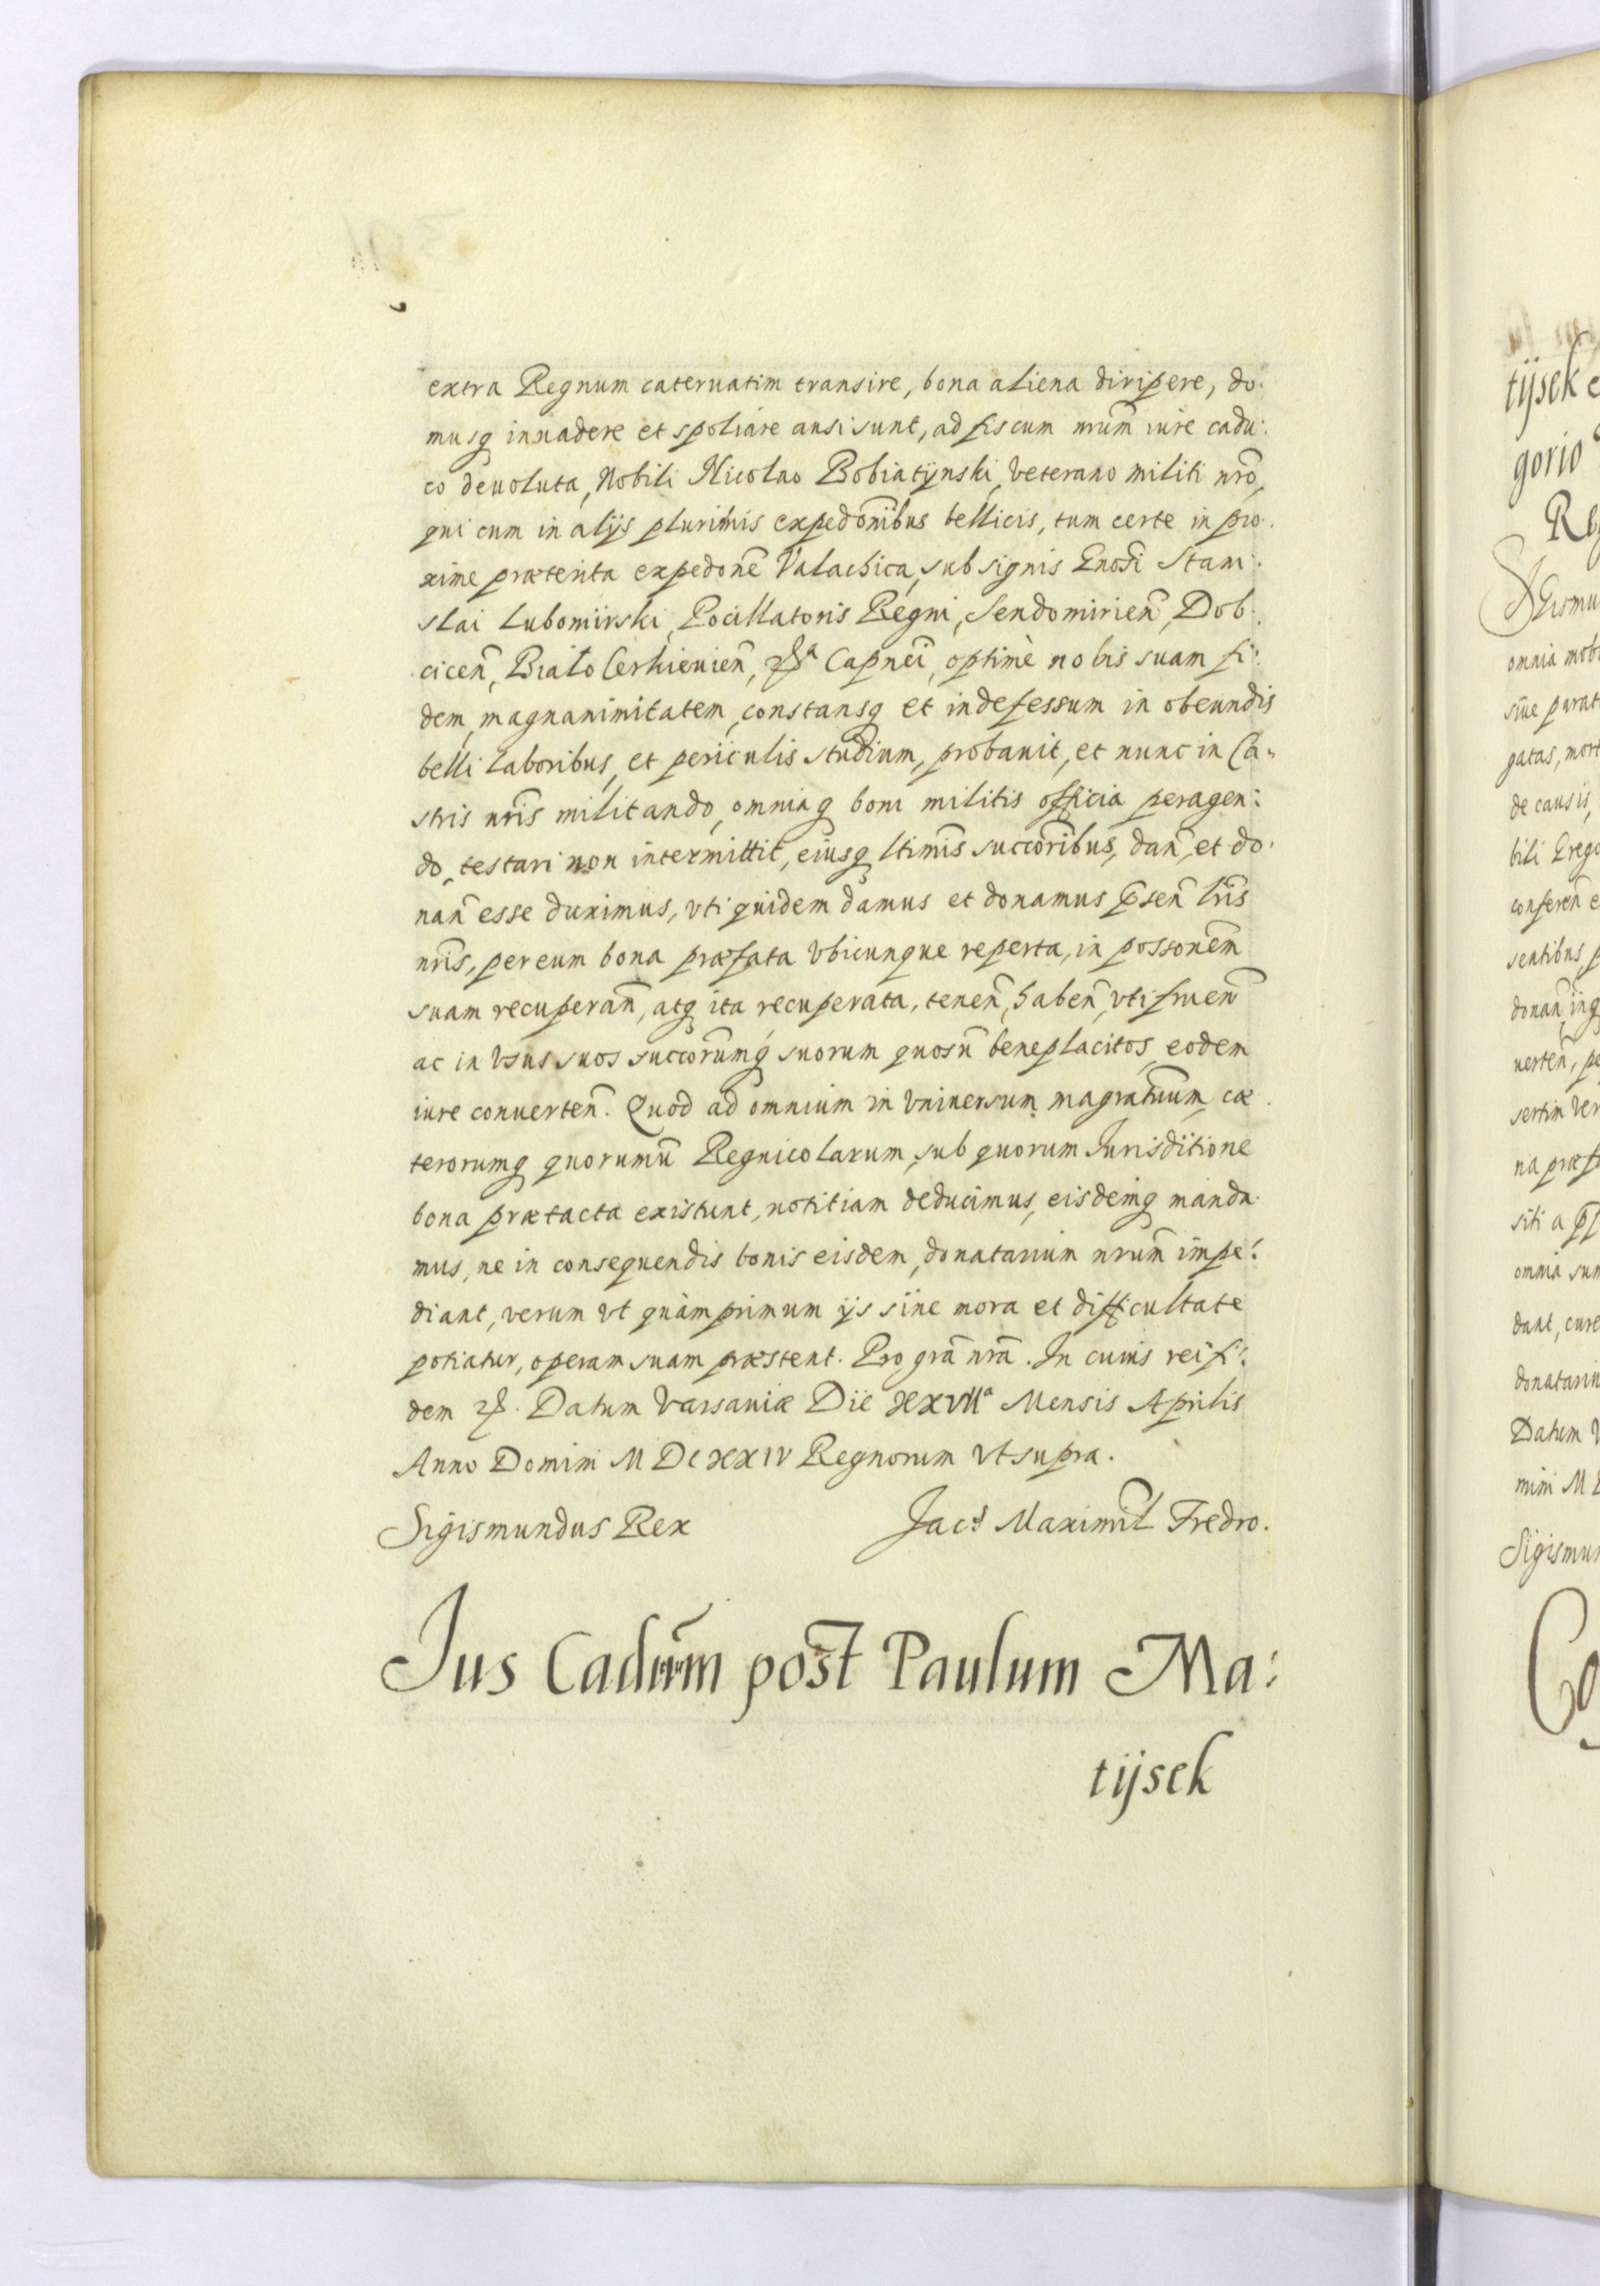 extra Regnum cateruatim transire, bona aliena diripere, do:
musq inuadere et spoliare ausi sunt, ad fiscum nrum̃ iure cadu:
co deuoluta, Nobili Nicolao Bobiatynski, veterano militi nrõ,
qui cum in alijs plurimis expedõnibus bellicis, tum certe in pro:
xime præterita expedonẽ Valachica, sub signis Gnosi Stani:
slai Lubomirski, Pocillatoris Regni, Sendomirieñ, Dob:
ciceñ, Biało Cerkieuieñ, Capneĩ, optimè nobis suam fi:
dem, magnanimitatem, constansq et indefessum in obeundis
belli laboribus, et periculis studium, probauit, et nunc in Ca=
stris nrĩs militando, omniaq boni militis officia peragen:
do, testari non intermittit, eiusq ltimĩs succoribũs, dañ, et do:
nañ esse duximus, vti quidem damus et donamus p̃señ lrĩs
nrĩs, per eum bona præfata vbicunque reperta, in possonẽm
suam recuperañ, atq ita recuperata, teneñ, habeñ, vti frueñ
ac in vsus suos succorũmq suorum quosũ beneplacitos, eodem
iure conuerteñ. Quod ad omnium in vniuersum magratũum, cæ:
terorumq quorumũ Regnicolarum, sub quorum Jurisditione
bona prætacta existunt, notitiam deducimus, eisdemq manda
mus, ne in consequendis bonis eisdem, donatarium nrum̃ impe:
diant, verum vt quàm primum ijs sine mora et difficultate
potiatur, operam suam præstent. Pro grã nrã. In cuius rei fi:
dem. Datum Varsauiæ Die XXVIIª Mensis Aprilis
Anno Domini M DCXXIV Regnorum vt supra.
Sigismundus Rex Jacs Maximil Fredro.
Jus Cadum̃ post Paulum Ma:
tijsek
tijsek
gorio
omnia mob
gatas, mort
de causis,
bili Grego
confereñ e
sentibus p
donañ, inq
uerteñ, pe
sertim ver
na præf
siti a
omnia sun
dant, cure
donatariu
Datum V
mini M D
Sigismun
Co